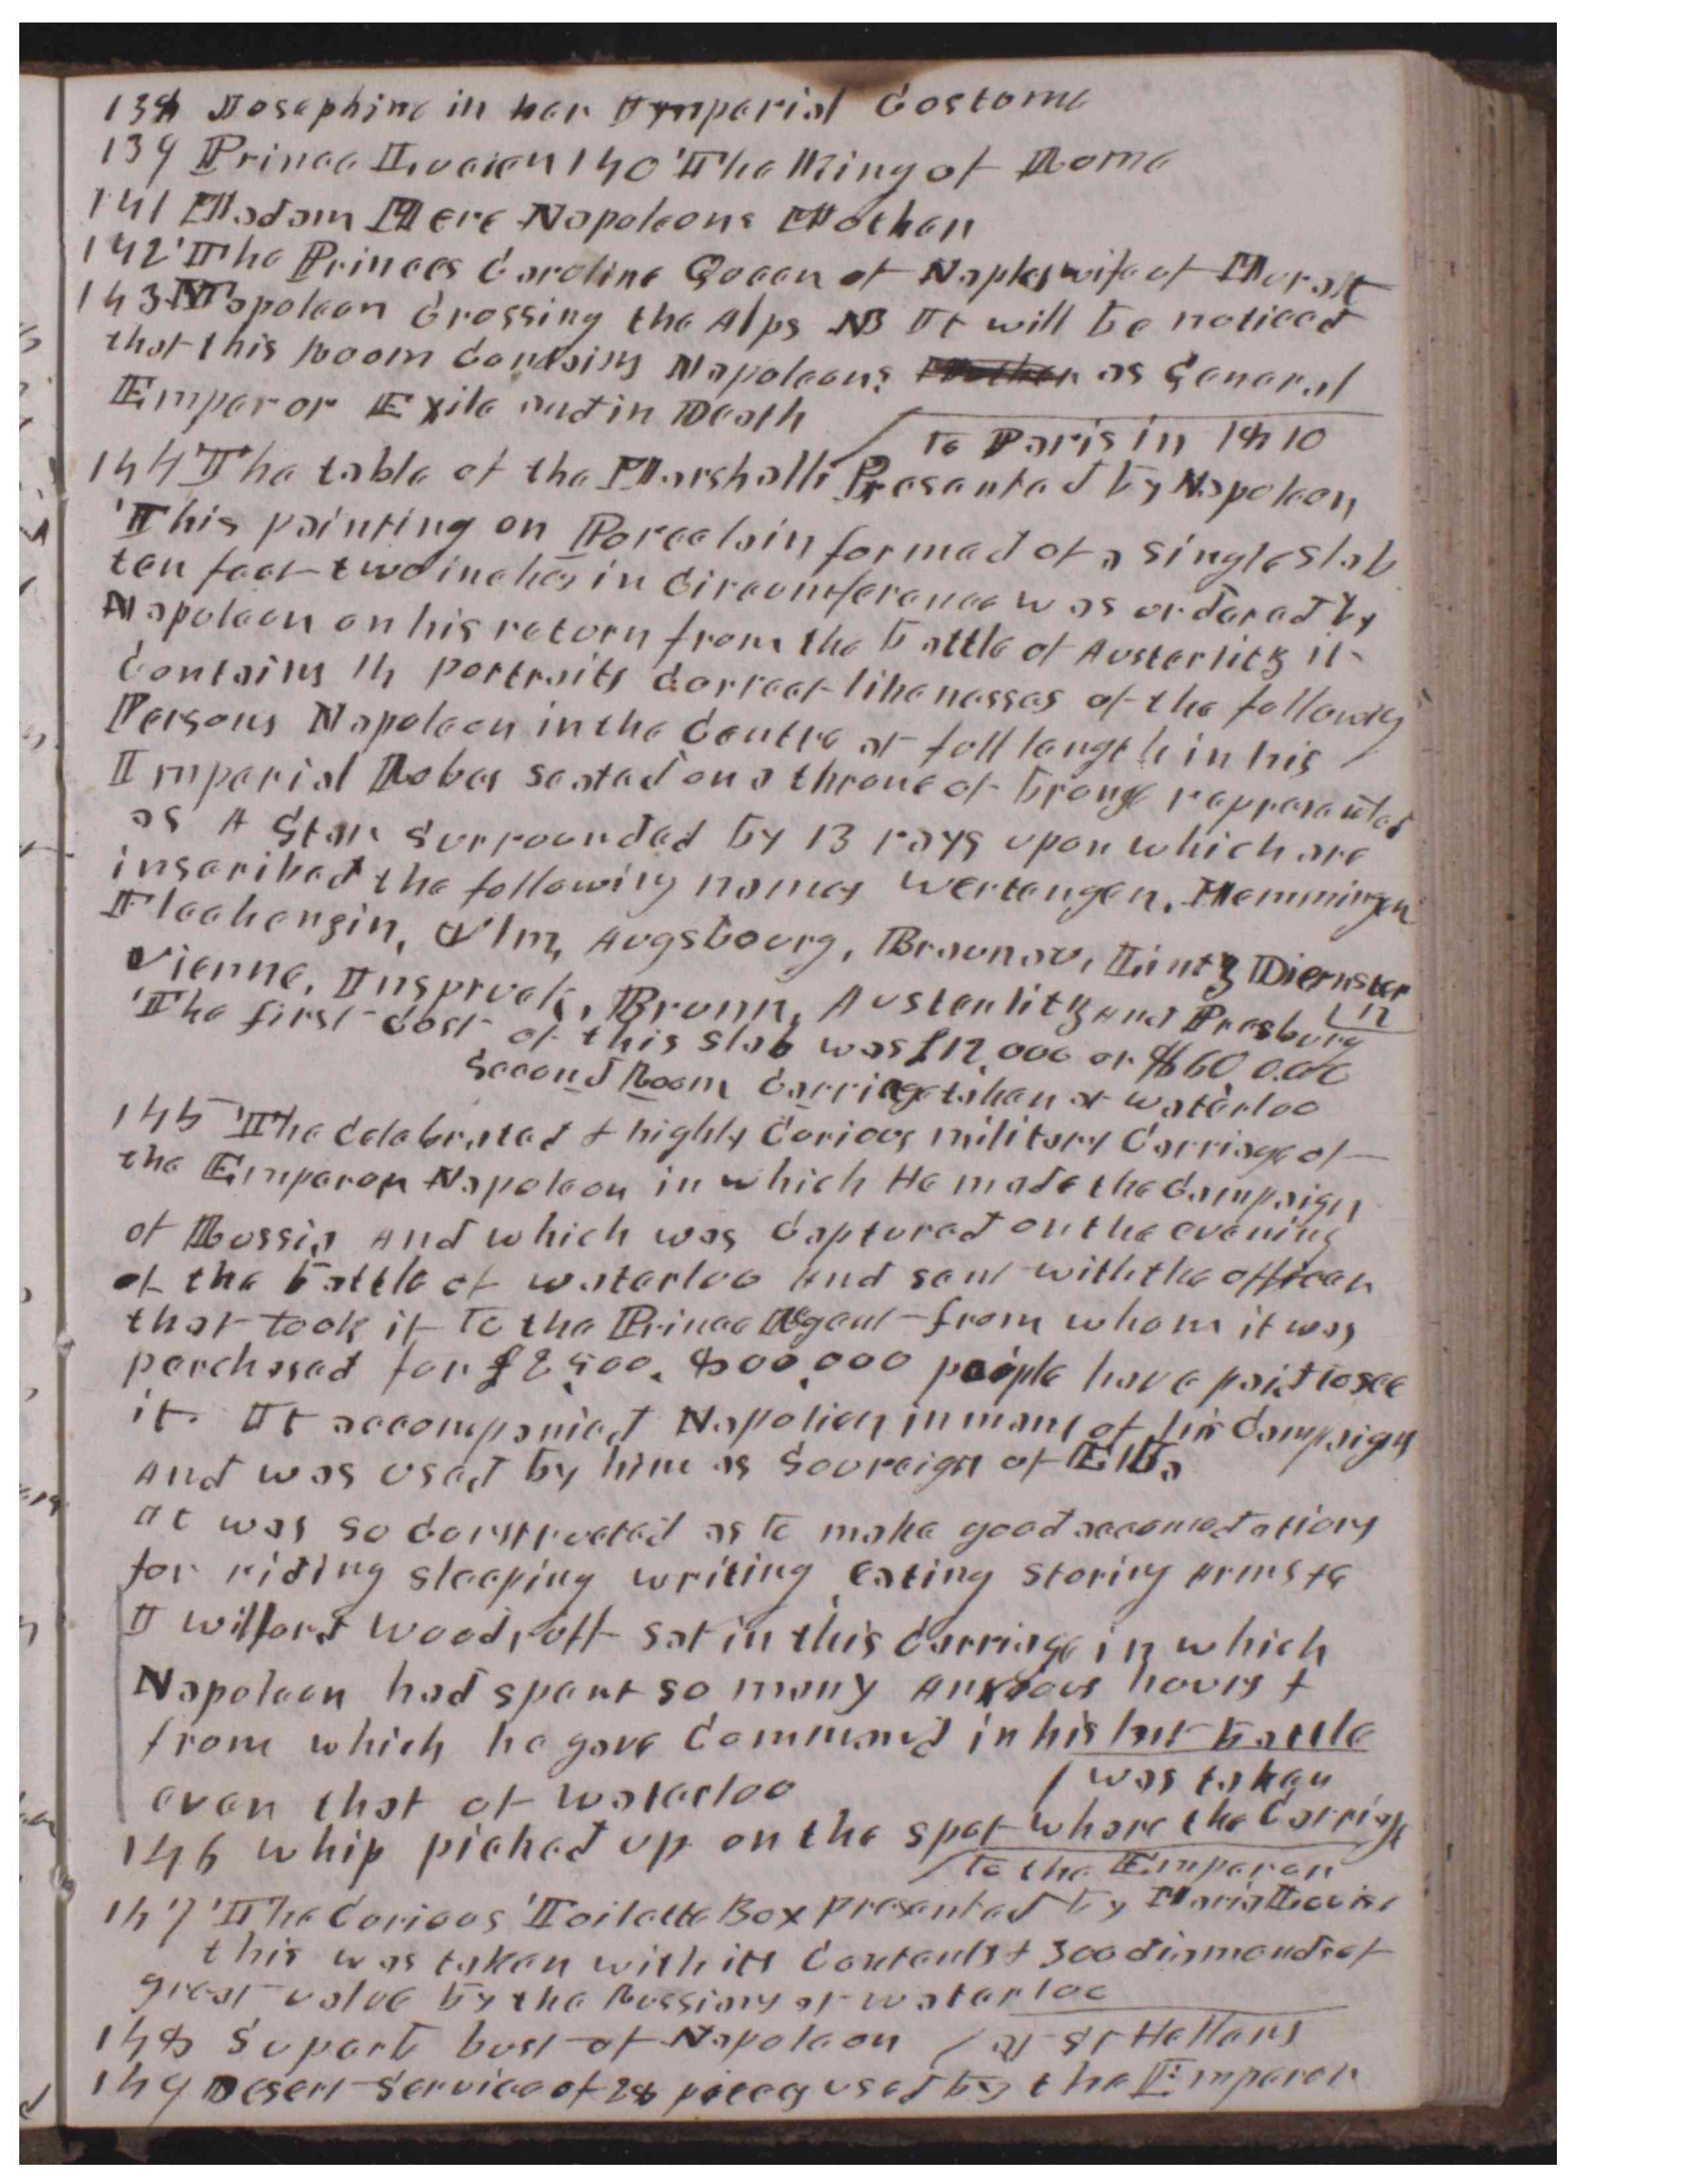 138 Josephine in her Imperial Costome
139 Prince Lucien 140 The King of Rome
141 Madam Mere Napoleons Mother
142 The Princes Caroline Queen of Naples wife of Murat
143 Napoleon Crossing the Alps NB It will be noticed
that this Room Contains Napoleons Mother as General
Emperor Exile and in Death
to Paris in 1810
144 The table of the Marshalls Presented by Napoleon
This painting on Porcelain formed of a single slab
ten feet two inches in Circumference was ordered by
Napoleon on his return from the battle of Austerlitz it
Contains 14 portraits Correct likenesses of the following
Persons Napoleon in the Centre at full length in his
Imperial Robes seated on a throne of bronze reppresented
as A Star Surrounded by 13 rays upon which are
inscribed the following names Wertengen, Memmingen
Elechengin, Ulm, Augsbourg, Braunau, Lintz Diernster
Vienne, Inspruck, Brunn, Austerlitz and Presburg
The first Cost of this slab was £12,000 or $60,000
Second Room Carriage taken at waterloo
145 The Celebrated & highly Curious military Carriage of
the Emperor Napoleon in which He made the Campaign
of Russia And which was Captured on the evening
of the battle of waterloo And sent with the officer
that took it to the Prince Regent from whom it was
purchased for £2,500. 800,000 people have paid to see
it. It accompanied Napolien in many of his Campaigns
And was used by him as Sovreign of Elba
It was so Constructed as to make good accomodations
for riding sleeping writing eating storing arms &c
I Willford Woodruff sat in this Carriage in which
Napoleon had spent so many Anxious hours &
from which he gave Command in his last battle
even that of waterloo
was taken
146 whip picked up on the spot where the Carriage
to the Emperor
147 The Curious Toilette Box presented by Maria Louise
this was taken with its Contents & 300 diamonds of
great value by the Prussians at waterloo
148 Superb bust of Napoleon
at St Hellans
149 Desert Service of 28 pieces used by the Emperor